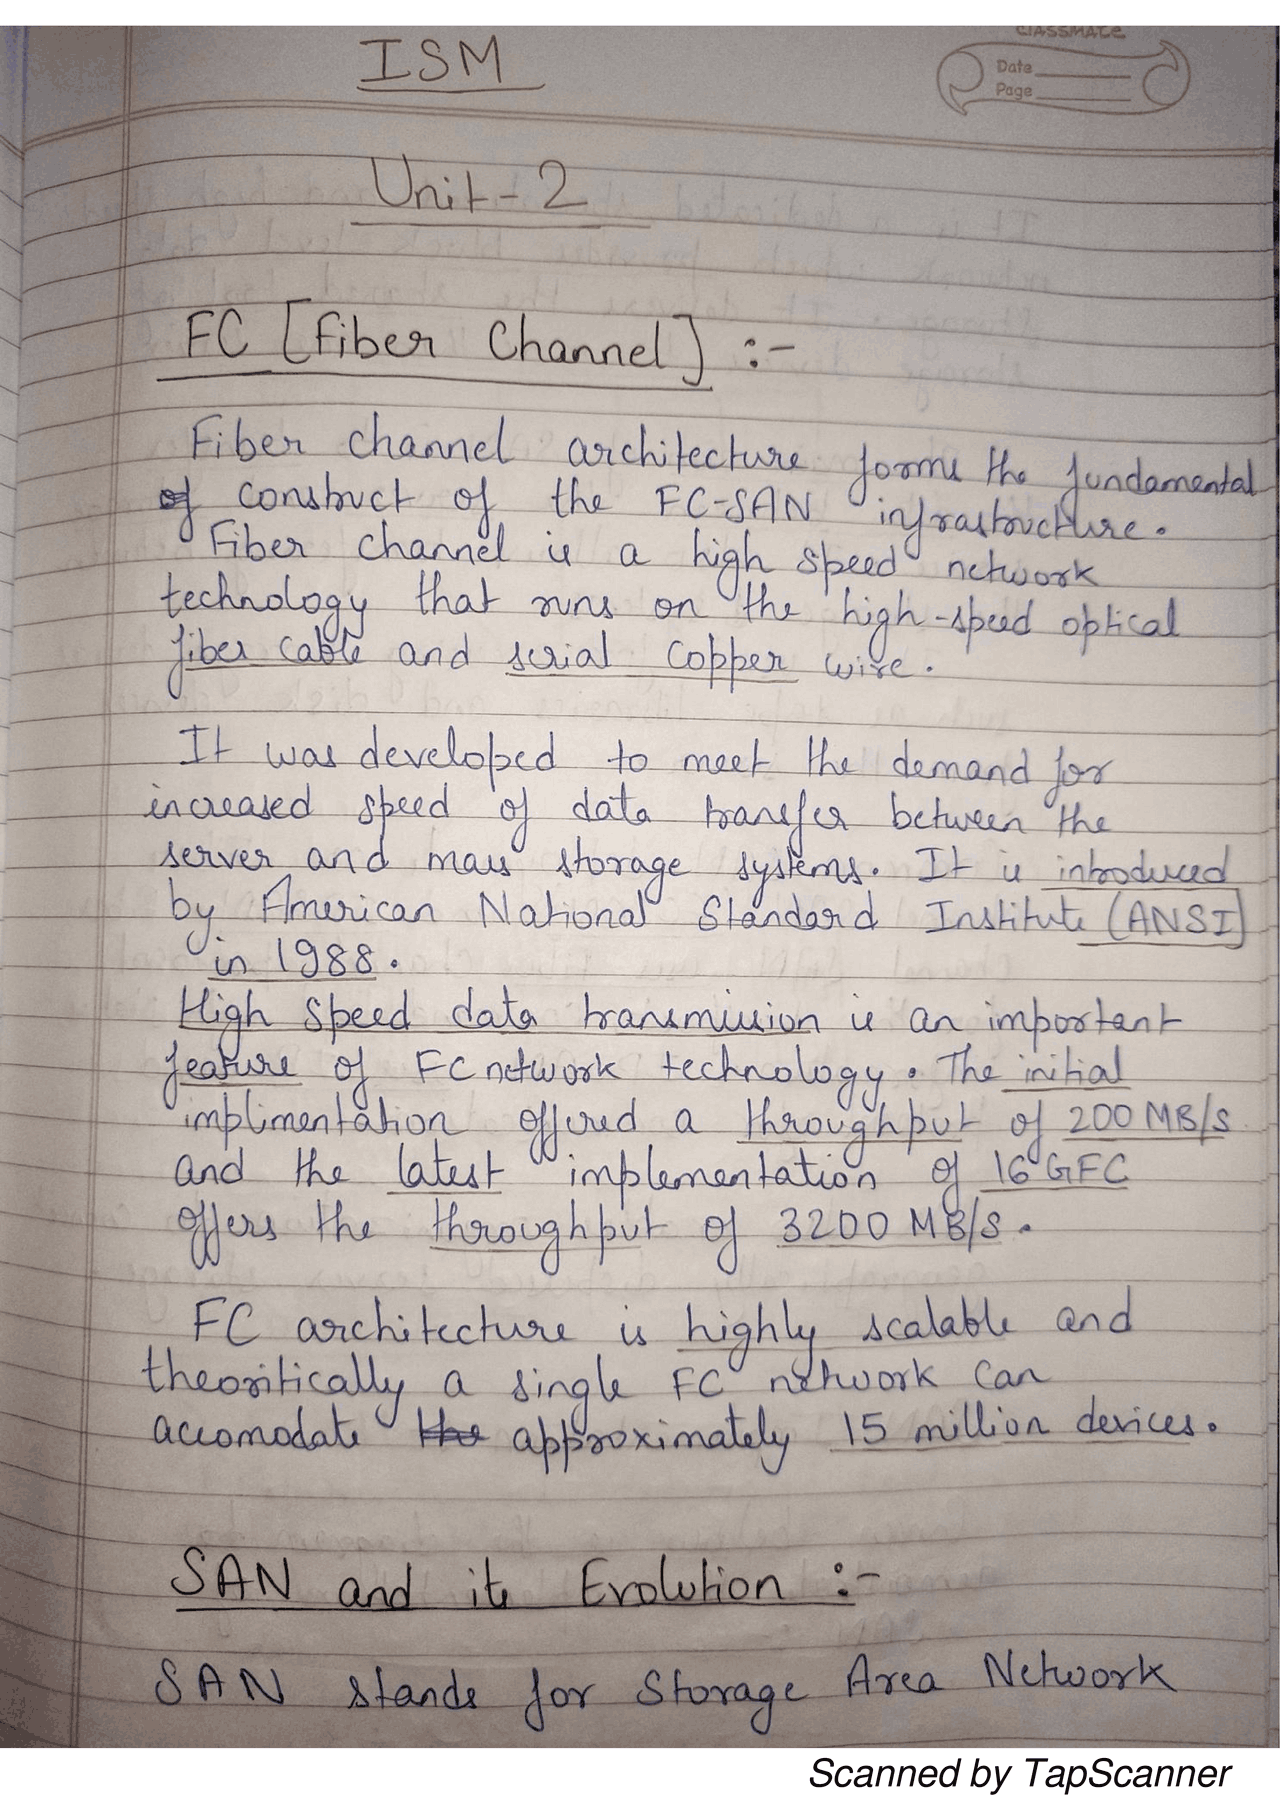 ISM
classmate
Date
Page
Unit-2
FC [Fiber Channel] :-
Fiber channel architecture forms the fundamental
of construct of the FC-SAN infrastructure.
Fiber channel is a high speed network
technology that runs on the high-speed optical
fiber cable and serial copper wire.
It was developed to meet the demand for
increased speed of data transfer between the
server and mass storage systems. It is introduced
by American National Standard Institute (ANSI)
in 1988.
High speed data transmission is an important
feature of FC network technology. The initial
implimentation offered a throughput of 200 MB/s
and the latest implementation of 16 GFC
offers the throughput of 3200 MB/s.
FC architecture is highly scalable and
theoritically a single FC network can
accomodate the approximately 15 million devices.
SAN and its Evolution :-
SAN stands for Storage Area Network
Scanned by TapScanner